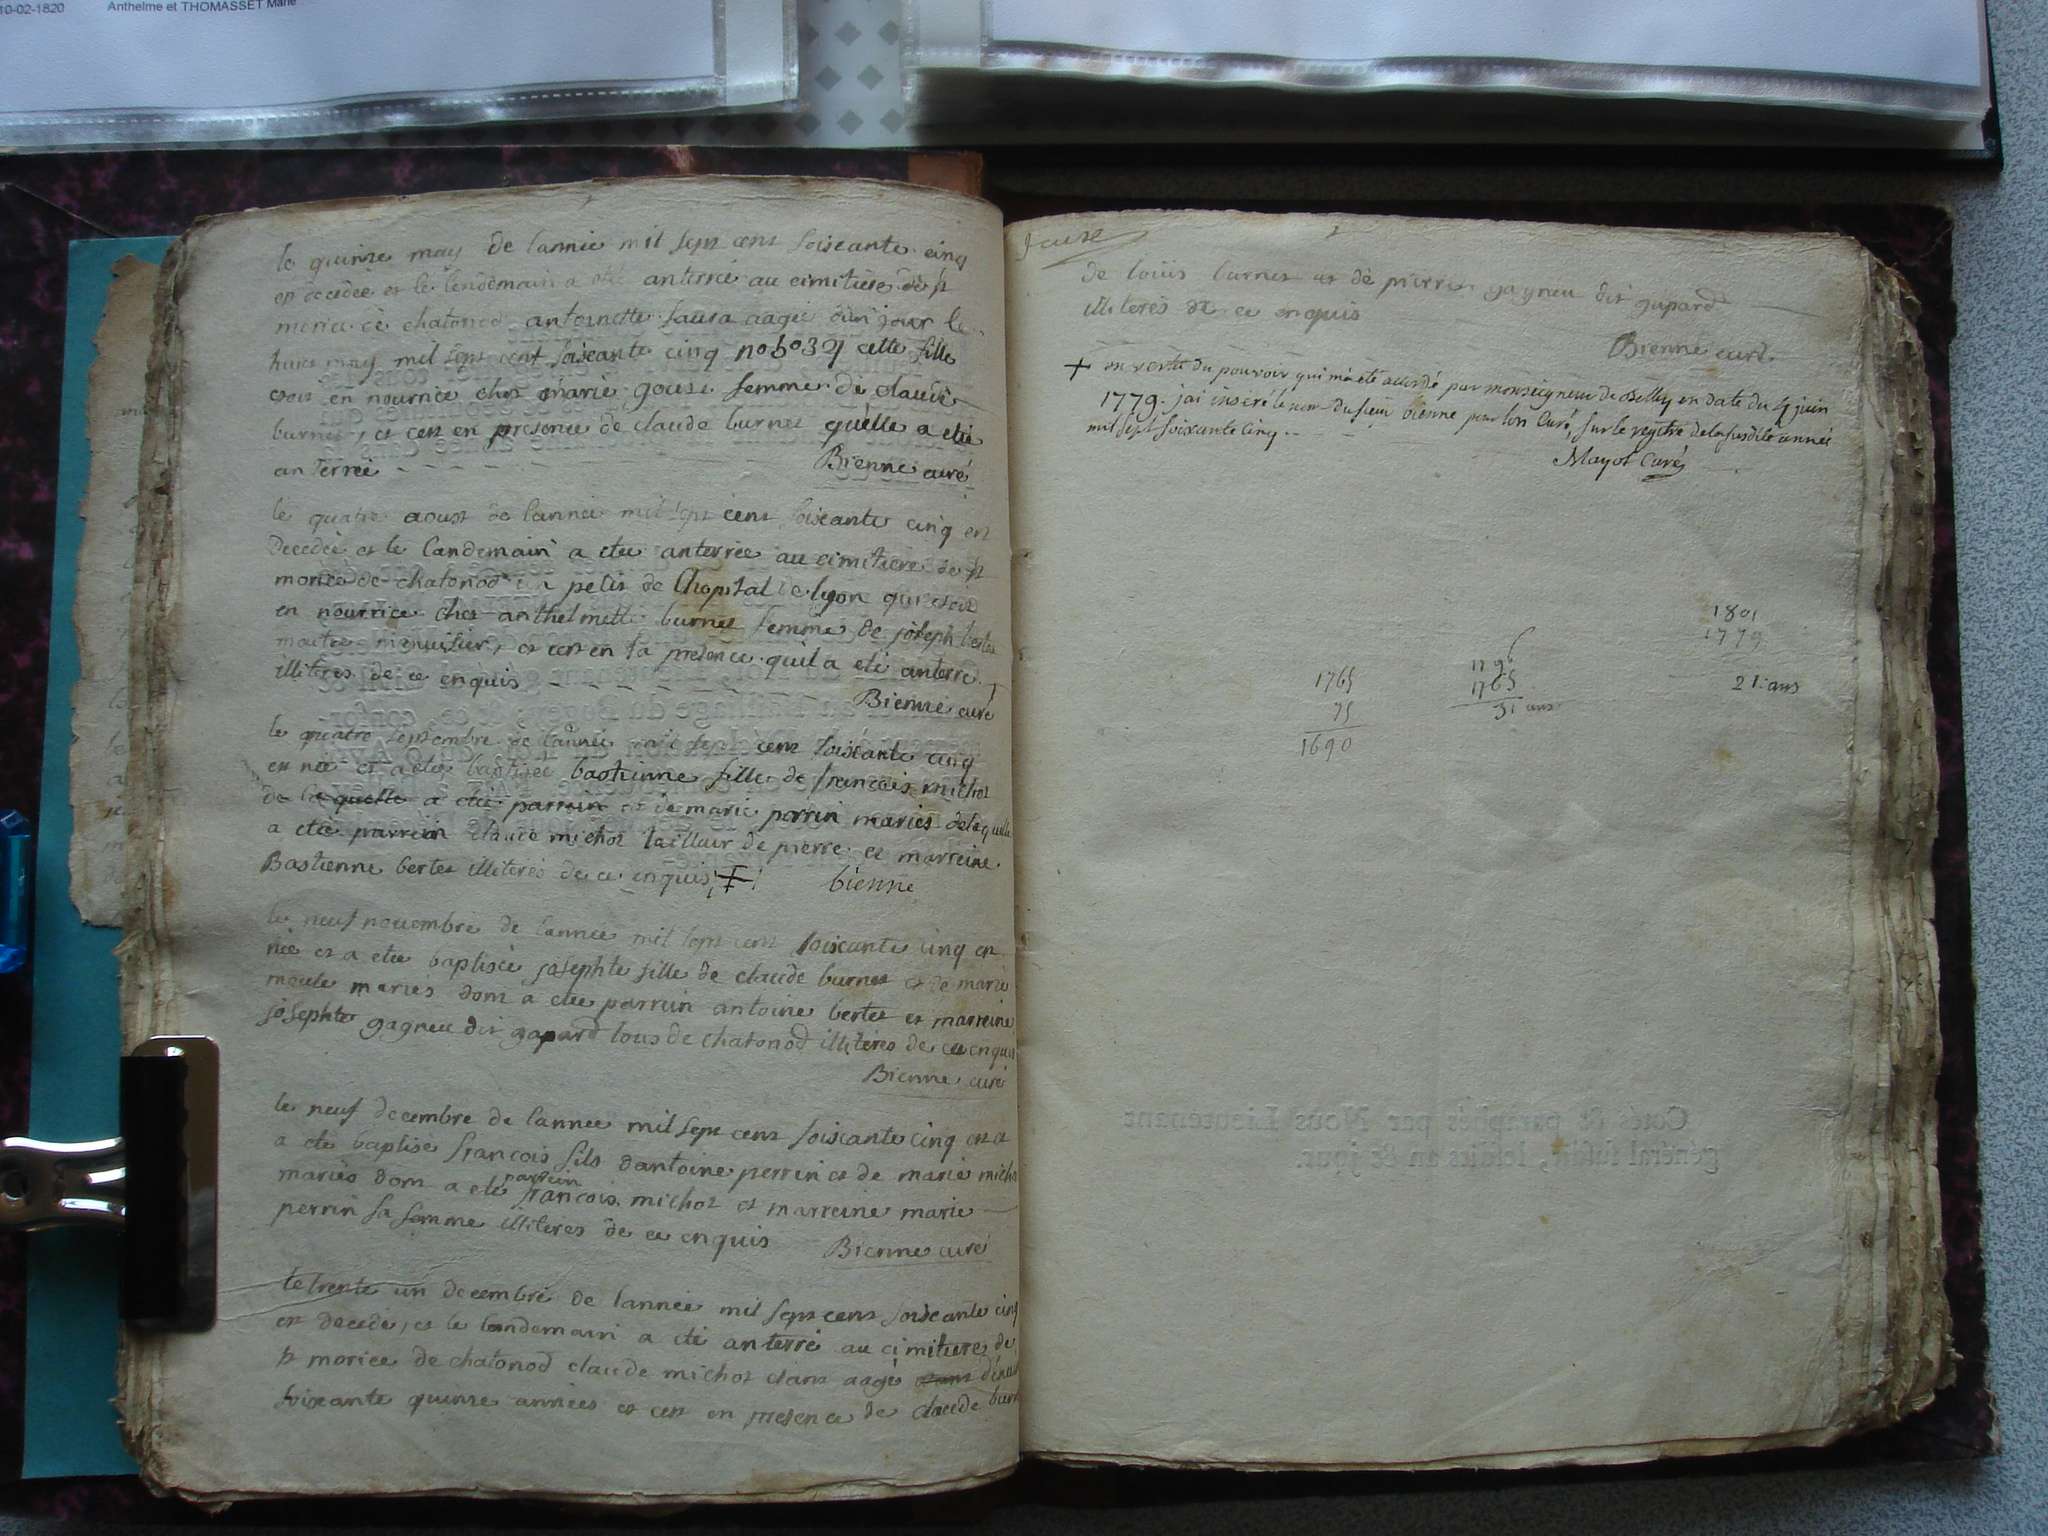 10-02-1820 Anthelme et THOMASSET Marie
le quinze may de lannée mil sept cens soiscante cinq
est decedée et le lendemain a eté anterrée au cimitiere de st
morice de chatonod antoinette aagée dun jour le
huict may mil sept cent soiscante cinq cette fille
etoit en nourrice ches marie gouse femme de claude
burnet, et cest en presence de claude burnet quelle a etée
anterrée Bienne curé
le quatre aoust de lannee mil sept cens soiscante cinq est
decedée et le landemain a etée anterrée au cimitiere de st
morice de chatonod un petit de lhopital de lyon qui etoit
en nourrice ches anthelmette burnet femme de joseph bertet
maitre menuisier, et cest en sa presence quil a eté anterré
illiteres de ce enquis
Bienne curé
le quatre septembre de lannée mil sept cens soixante cinq
est née et a etée baptisée bastienne fille de francois michot
de laquelle a eté parrain et de marie perrin mariés delaquelle
a etée parrein claude michot tailleur de pierre et marreine
Bastienne bertet illiterés de ce enquis + bienne
le neuf novembre de lannee mil sept cens soiscante cinq est
née et a etée baptisée josephte fille de claude burnet et de marie
meule mariés dont a etée parrein antoine bertet et marreine
josephte gagneu dit gapard tous de chatonod illiterés de ce enquis
Bienne curé
le neuf decembre de lannee mil sept cens soiscante cinq est et
a eté baptisé francois fils dantoine perrin et de marie michot
mariés dont a eté parrein francois michot et marreine marie
perrin sa femme illiteres de ce enquis Bienne curé
le trente un decembre de lannée mil sept cens soiscante cinq
est decedé, et le landemain a eté anterré au cimitiere de
st morice de chatonod claude michot aagé
soixante quinze années et cest en presence de claude burnet
de loüis burnet et de pierre gagneu dit gapard
illiterés de ce enquis
Bienne curé
+ en vertu du pouvoir qui m'a eté accordé par monseigneur de Belley en date du 4 juin
1779. j'ai inseré le nom du sieur bienne pour lors Curé, sur le regitre de la susdite année
mil sept soixante cinq
Mayot Curé
1801
1779
21 ans
1796
1765
31 ans
1765
75
1690
Cotés & paraphés par Nous Lieutenant
général susdit, lesdits an & jour.